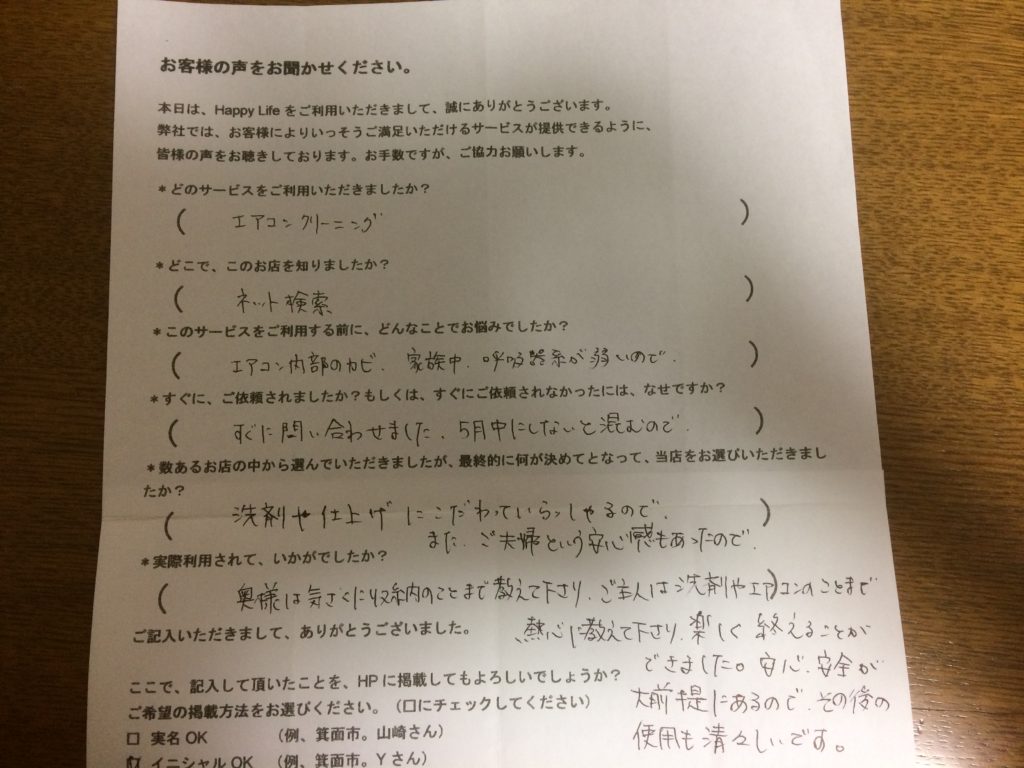 お客様の声をお聞かせください。
本日は、Happy Life をご利用いただきまして、誠にありがとうございます。
弊社では、お客様によりいっそうご満足いただけるサービスが提供できるように、
皆様の声をお聴きしております。お手数ですが、ご協力お願いします。
＊どのサービスをご利用いただきましたか？
( エアコンクリーニング )
＊どこで、このお店を知りましたか？
( ネット検索 )
＊このサービスをご利用する前に、どんなことでお悩みでしたか？
( エアコン内部のカビ、家族中、呼吸器系が弱いので、 )
＊すぐに、ご依頼されましたか？もしくは、すぐにご依頼されなかったには、なぜですか？
( すぐに問い合わせました、5月中にしないと混むので、 )
＊数あるお店の中から選んでいただきましたが、最終的に何が決めてとなって、当店をお選びいただきまし
たか？
( 洗剤や仕上げにこだわっていらっしゃるので、 )
また、ご夫婦という安心感もあったので、
＊実際利用されて、いかがでしたか？
( 奥様は気さくに収納のことまで教えて下さり、ご主人は洗剤やエアコンのことまで )
熱心に教えて下さり、楽しく終えることが
ご記入いただきまして、ありがとうございました。
できました。安心、安全が
大前提にあるので、その後の
使用も清々しいです。
ここで、記入して頂いたことを、HP に掲載してもよろしいでしょうか？
ご希望の掲載方法をお選びください。（口にチェックしてください）
□ 実名 OK （例、箕面市。山崎さん）
☑ イニシャル OK （例、箕面市。Y さん）